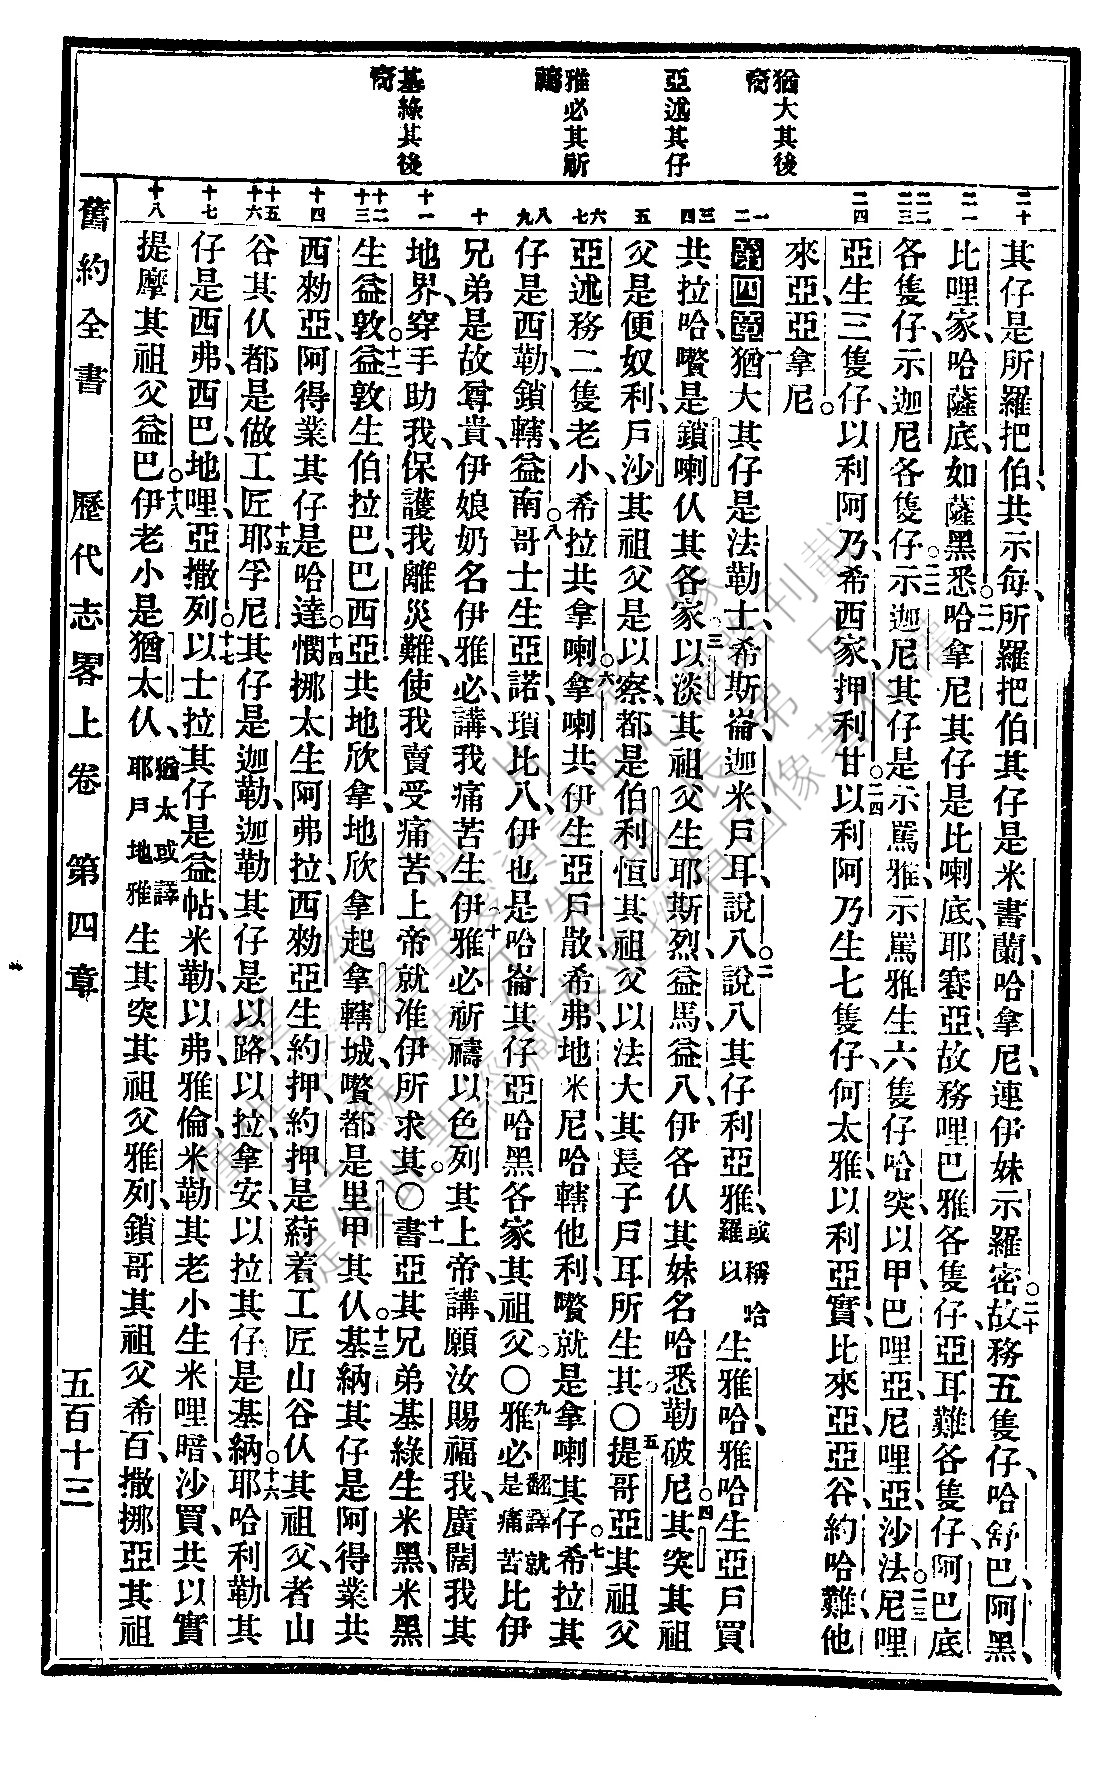 猶大其後裔
亞述其仔
雅必其祈禱
基綠其後裔
二十
二一
二二
二三
二四
一
二
三
四
五
六
七
八
九
十
十一
十二
十三
十四
十五
十六
十七
十八
其仔是所羅把伯共示每、所羅把伯其仔是米書蘭、哈拿尼連伊妹示羅密。二十故務五隻仔、哈舒巴、阿黑、
比哩家、哈薩底、如薩黑悉。二一哈拿尼其仔是比喇底、耶賽亞、故務哩巴雅各隻仔、亞耳難各隻仔、阿巴底
各隻仔、示迦尼各隻仔。二二示迦尼其仔是示罵雅、示罵雅生六隻仔、哈突、以甲、巴哩亞、尼哩亞、沙法。二三尼哩
亞生三隻仔、以利阿乃、希西家、押利甘。二四以利阿乃生七隻仔、何太雅、以利亞實、比來亞、亞谷、約哈難、他
來亞、亞拿尼。
第四章一猶大其仔是法勒士、希斯崙、迦米、戶耳、說八。二說八其仔利亞雅、或稱哈羅以生雅哈、雅哈生亞戶買
共拉哈嚽是鎖喇仈其各家。三以淡其祖父生耶斯烈、益馬、益八、伊各仈其妹名哈悉勒破尼。四其突其祖
父是便奴利、戶沙其祖父是以察、都是伯利恒其祖父以法大其長子戶耳所生其。○五提哥亞其祖父
亞述務二隻老小、希拉共拿喇。六拿喇共伊生亞戶散、希弗、地米尼、哈轄他利、嚽就是拿喇其仔。七希拉其
仔是西勒、鎖轄、益南。八哥士生亞諾、瑣比八、伊也是哈崙其仔亞哈黑各家其祖父。○九雅必翻譯就是痛苦比伊
兄弟是故尊貴、伊娘奶名伊雅必、講我痛苦生伊。十雅必祈禱以色列其上帝、講願汝賜福我、廣闊我其
地界、穿手助我、保護我離災難、使我賣受痛苦、上帝就准伊所求其。○十一書亞其兄弟基綠生米黑、米黑
生益敦。十二益敦生伯拉巴、巴西亞共地欣拿、地欣拿起拿轄城、嚽都是里甲其仈。十三基納其仔是阿得業共
西勑亞、阿得業其仔是哈達。十四憫挪太生阿弗拉、西勑亞生約押、約押是葤着工匠山谷仈其祖父者山
谷其仈都是做工匠。十五耶孚尼其仔是迦勒、迦勒其仔是以路、以拉、拿安、以拉其仔是基納。十六耶哈利勒其
仔是西弗、西巴、地哩、亞撒列。十七以士拉其仔是益帖、米勒、以弗、雅倫、米勒其老小生米哩暗、沙買、共以實
提摩其祖父益巴。十八伊老小是猶太仈、猶太或譯耶戶地雅生其突其祖父雅列、鎖哥其祖父希百、撒挪亞其祖
舊約全書　歷代志畧上卷　第四章　五百十三